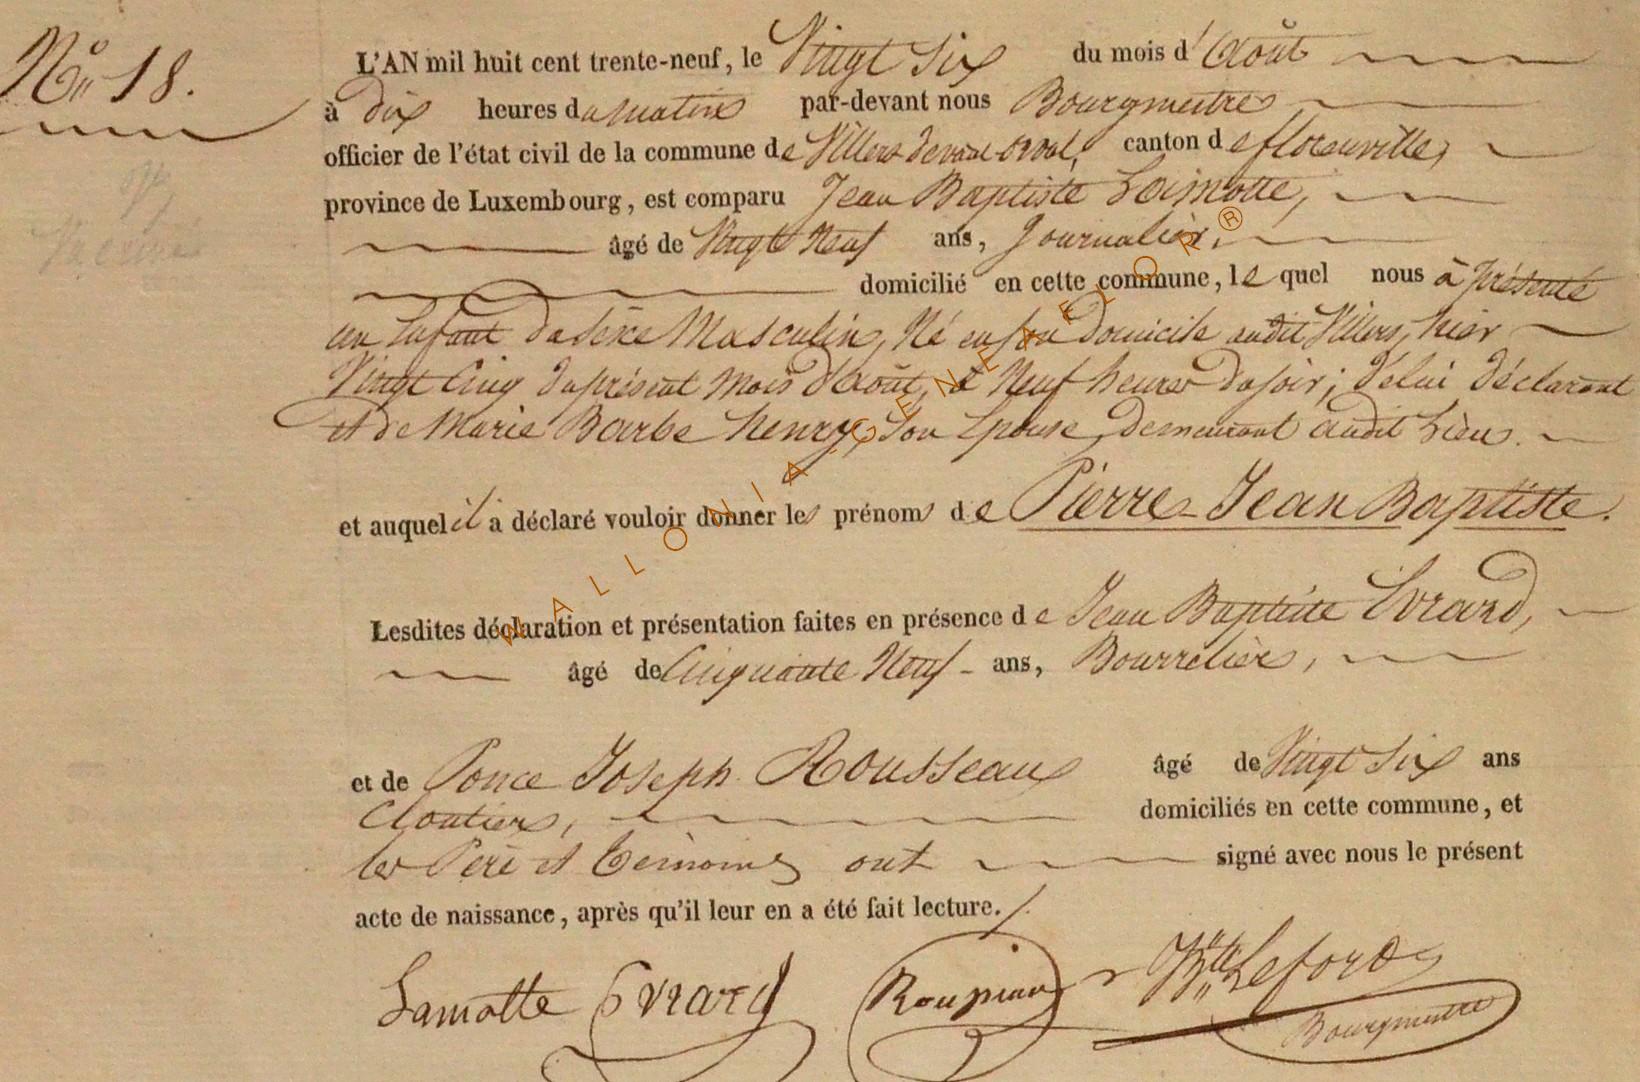 N° 18.
L'AN mil huit cent trente-neuf, le Vingt Six du mois d'Août
à dix heures du matin par-devant nous Bourgmestre
officier de l'état civil de la commune de Villers devant orval, canton de florenville,
province de Luxembourg, est comparu Jean Baptiste Lamotte,
âgé de Vingt Neuf ans, Journalier,
domicilié en cette commune, le quel nous à présenté
un Enfant du sexe Masculin, Né en son domicile audit Villers, hier
Vingt Cinq du présent Mois d'Août, à Neuf heures du soir; de lui déclarant
et de Marie Barbe henry, Son Epouse, demeurant audit Lieu.
et auquel il a déclaré vouloir donner les prénoms de Pierre Jean Baptiste.
Lesdites déclaration et présentation faites en présence de Jean Baptiste Evrard,
âgé de Cinquante Neuf ans, Bourrelier,
et de Ponce Joseph Rousseaux âgé de Vingt Six ans
Cloutier, domiciliés en cette commune, et
les Père et Témoins ont signé avec nous le présent
acte de naissance, après qu'il leur en a été fait lecture./.
Lamotte Evrard
Bourgmestre
WALLONIA-GENEALOR®